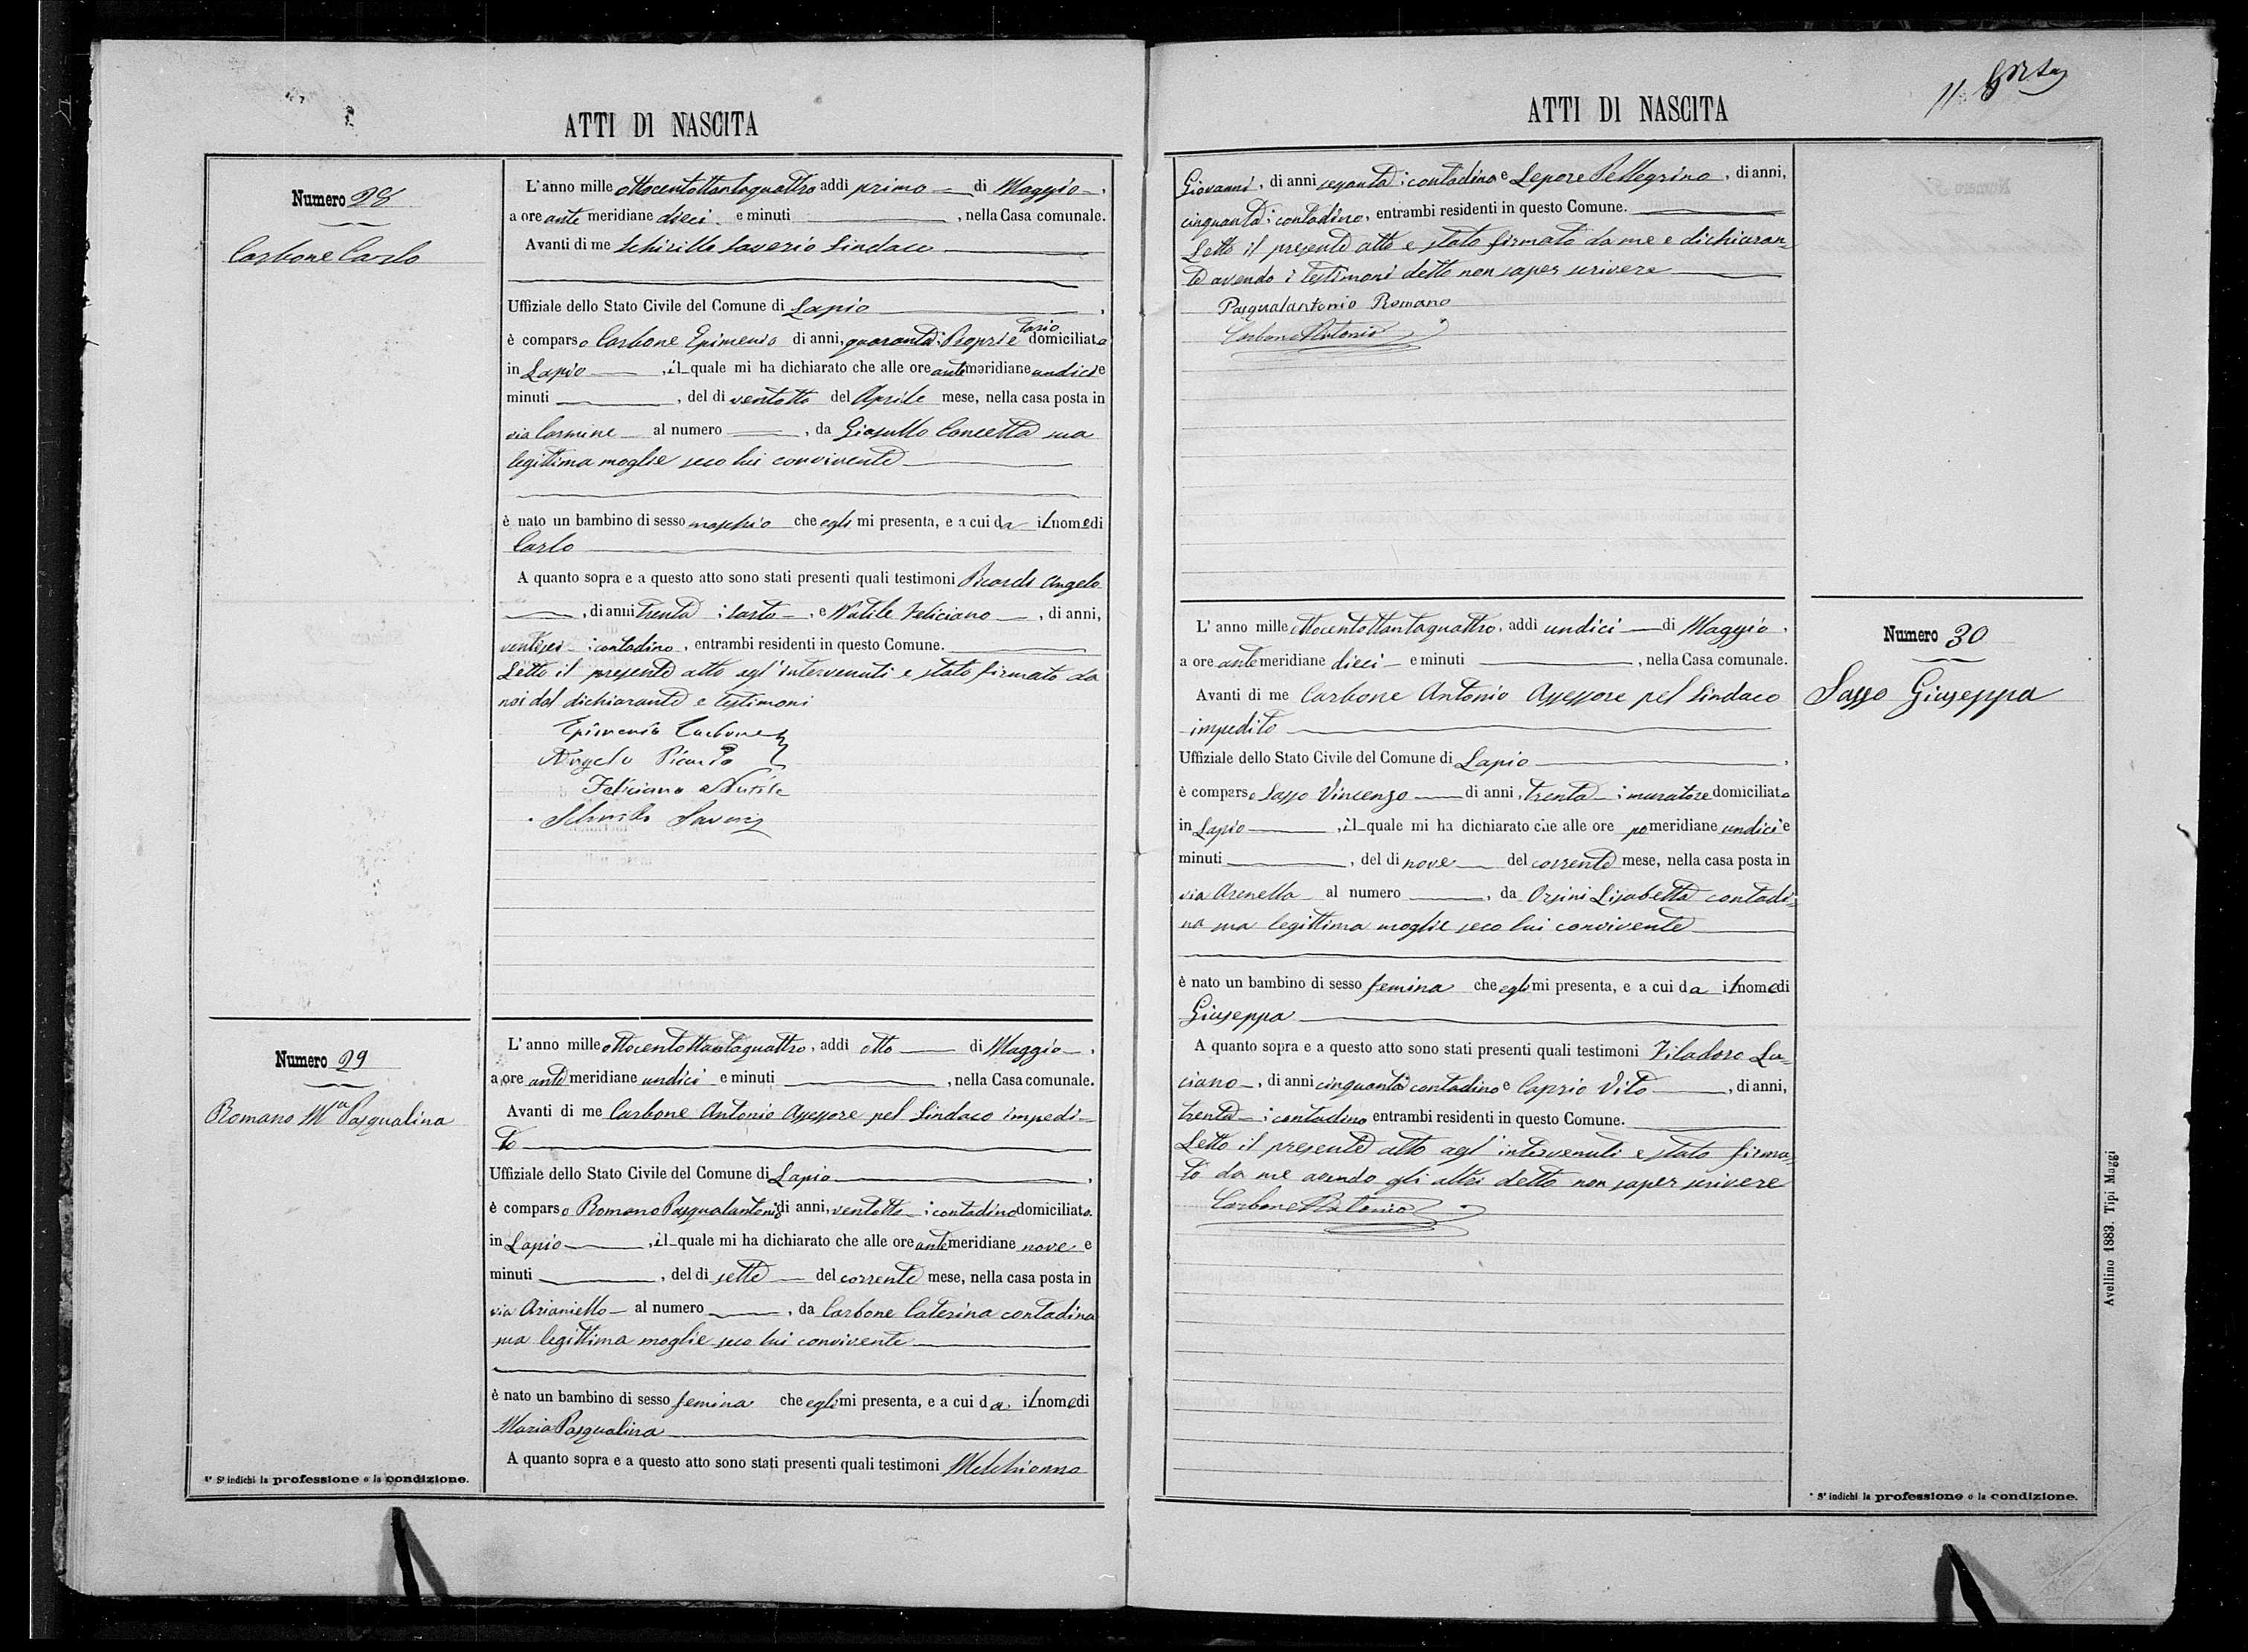 ATTI DI NASCITA
Numero 28
Carbone Carlo
L'anno mille ottocentottantaquattro addi primo di Maggio,
a ore ante meridiane dieci e minuti , nella Casa comunale.
Avanti di me Schirillo Saverio Sindaco
Uffiziale dello Stato Civile del Comune di Lapio,
è comparso Carbone Epimenio di anni, quaranta; Proprietario domiciliato
in Lapio, il quale mi ha dichiarato che alle ore antemeridiane undici e
minuti , del dì ventotto del Aprile mese, nella casa posta in
via Carmine al numero , da Giasullo Concetta sua
legittima moglie seco lui convivente
è nato un bambino di sesso maschio che egli mi presenta, e a cui da il nome di
Carlo
A quanto sopra e a questo atto sono stati presenti quali testimoni Picardi Angelo
, di anni trenta; sarto, e Nutile Feliciano, di anni,
ventisei; contadino, entrambi residenti in questo Comune.
Letto il presente atto agl'intervenuti e stato firmato da
noi dal dichiarante e testimoni
Epimenio Carbone
Angelo Picardo
Feliciano Nutile
Schirillo Saverio
Numero 29
Romano Mª Pasqualina
L'anno mille ottocentottantaquattro, addi otto di Maggio,
a ore ante meridiane undici e minuti , nella Casa comunale.
Avanti di me Carbone Antonio Assessore pel Sindaco impedi-
to
Uffiziale dello Stato Civile del Comune di Lapio,
è comparso Romano Pasqualantonio di anni, ventotto; contadino domiciliato
in Lapio, il quale mi ha dichiarato che alle ore antemeridiane nove e
minuti , del dì sette del corrente mese, nella casa posta in
via Arianiello al numero , da Carbone Caterina contadina
sua legittima moglie seco lui convivente
è nato un bambino di sesso femina che egli mi presenta, e a cui da il nome di
Maria Pasqualina
A quanto sopra e a questo atto sono stati presenti quali testimoni Melchionna
* S'indichi la professione o la condizione.
ATTI DI NASCITA
11
Giovanni, di anni sessanta; contadino e Lepore Pellegrino, di anni,
cinquanta; contadino, entrambi residenti in questo Comune.
Letto il presente atto e stato firmato da me e dichiaran-
te avendo i testimoni detto non saper scrivere
Pasqualantonio Romano
Carbone Antonio
L'anno mille ottocentottantaquattro, addi undici di Maggio,
a ore ante meridiane dieci e minuti , nella Casa comunale.
Avanti di me Carbone Antonio Assessore pel Sindaco
impedito
Uffiziale dello Stato Civile del Comune di Lapio,
è comparso Sasso Vincenzo di anni, trenta; muratore domiciliato
in Lapio, il quale mi ha dichiarato che alle ore pomeridiane undici e
minuti , del dì nove del corrente mese, nella casa posta in
via Arenella al numero , da Orsini Lisabetta contadi-
na sua legittima moglie seco lui convivente
è nato un bambino di sesso femina che egli mi presenta, e a cui da il nome di
Giuseppa
A quanto sopra e a questo atto sono stati presenti quali testimoni Filadoro Lu-
ciano, di anni cinquanta contadino e Caprio Vito, di anni,
trenta; contadino entrambi residenti in questo Comune.
Letto il presente atto agl'intervenuti e stato firma-
to da me avendo gli altri detto non saper scrivere
Carbone Antonio
Numero 30
Sasso Giuseppa
* S'indichi la professione o la condizione.
Avellino 1883. Tipi Maggi